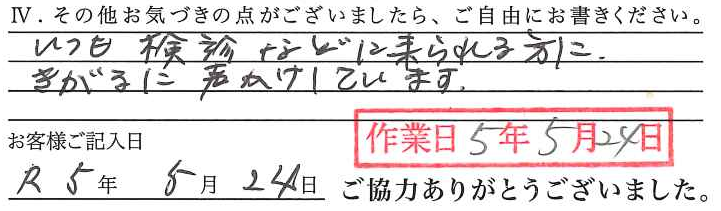 Ⅳ．その他お気づきの点がございましたら、ご自由にお書きください。
いつも 検診 などに来られる方に.
きがるに 声かけしています.
作業日 5年 5月24日
お客様ご記入日
R 5年 5月 24日 ご協力ありがとうございました。